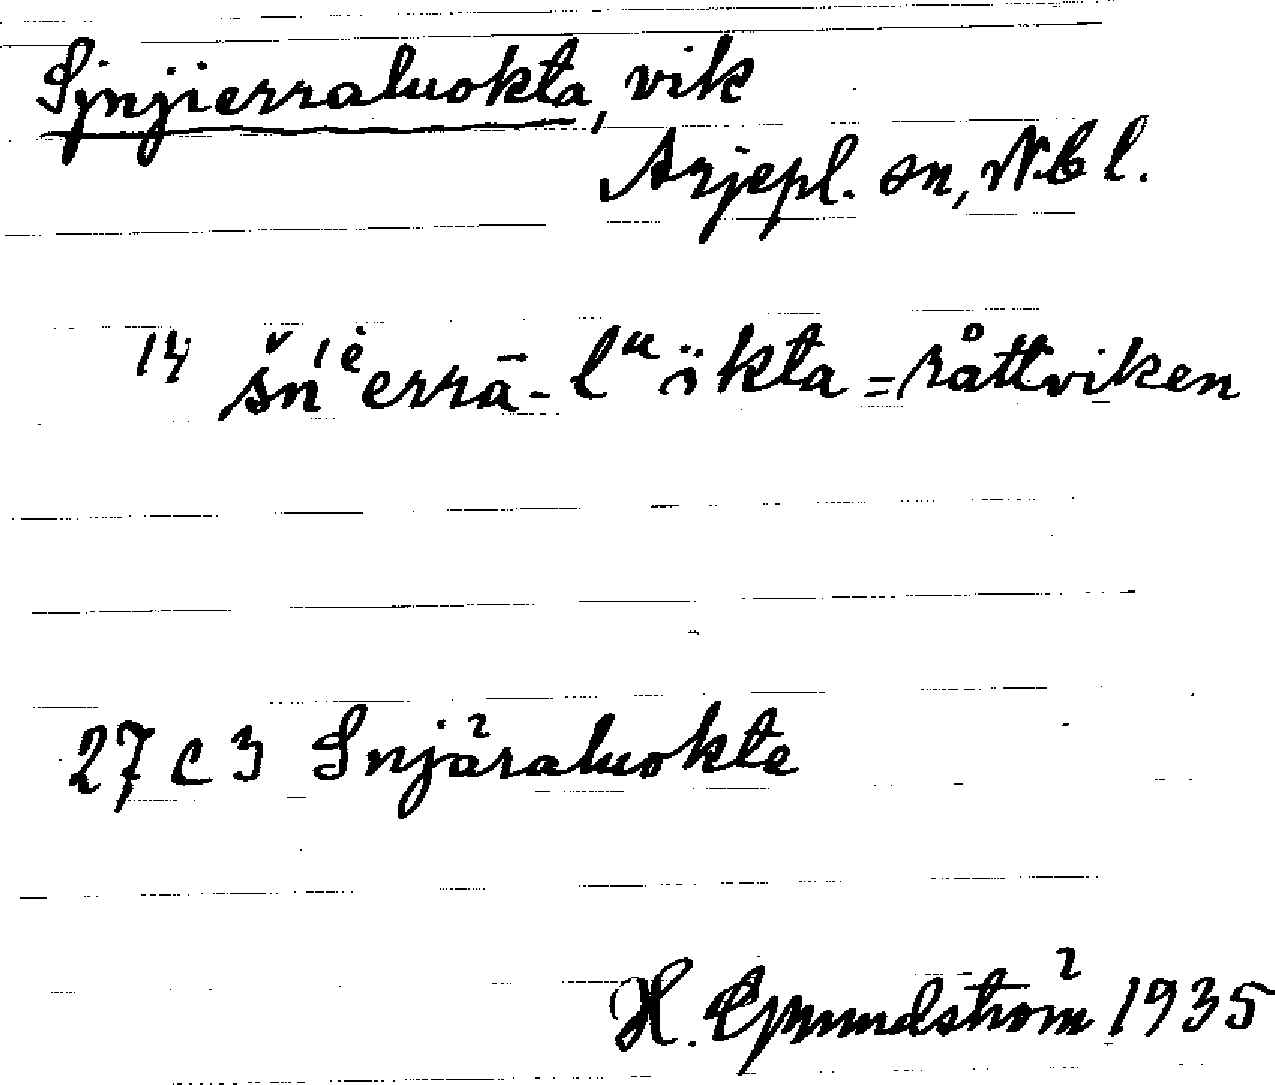 Sjnjierraluokta, vik
Arjepl. sn, Nbl.
14 šń ė errā-l ᵘ ökta = råttviken
27 c 3 Snjäraluokte
H. Grundström 1935